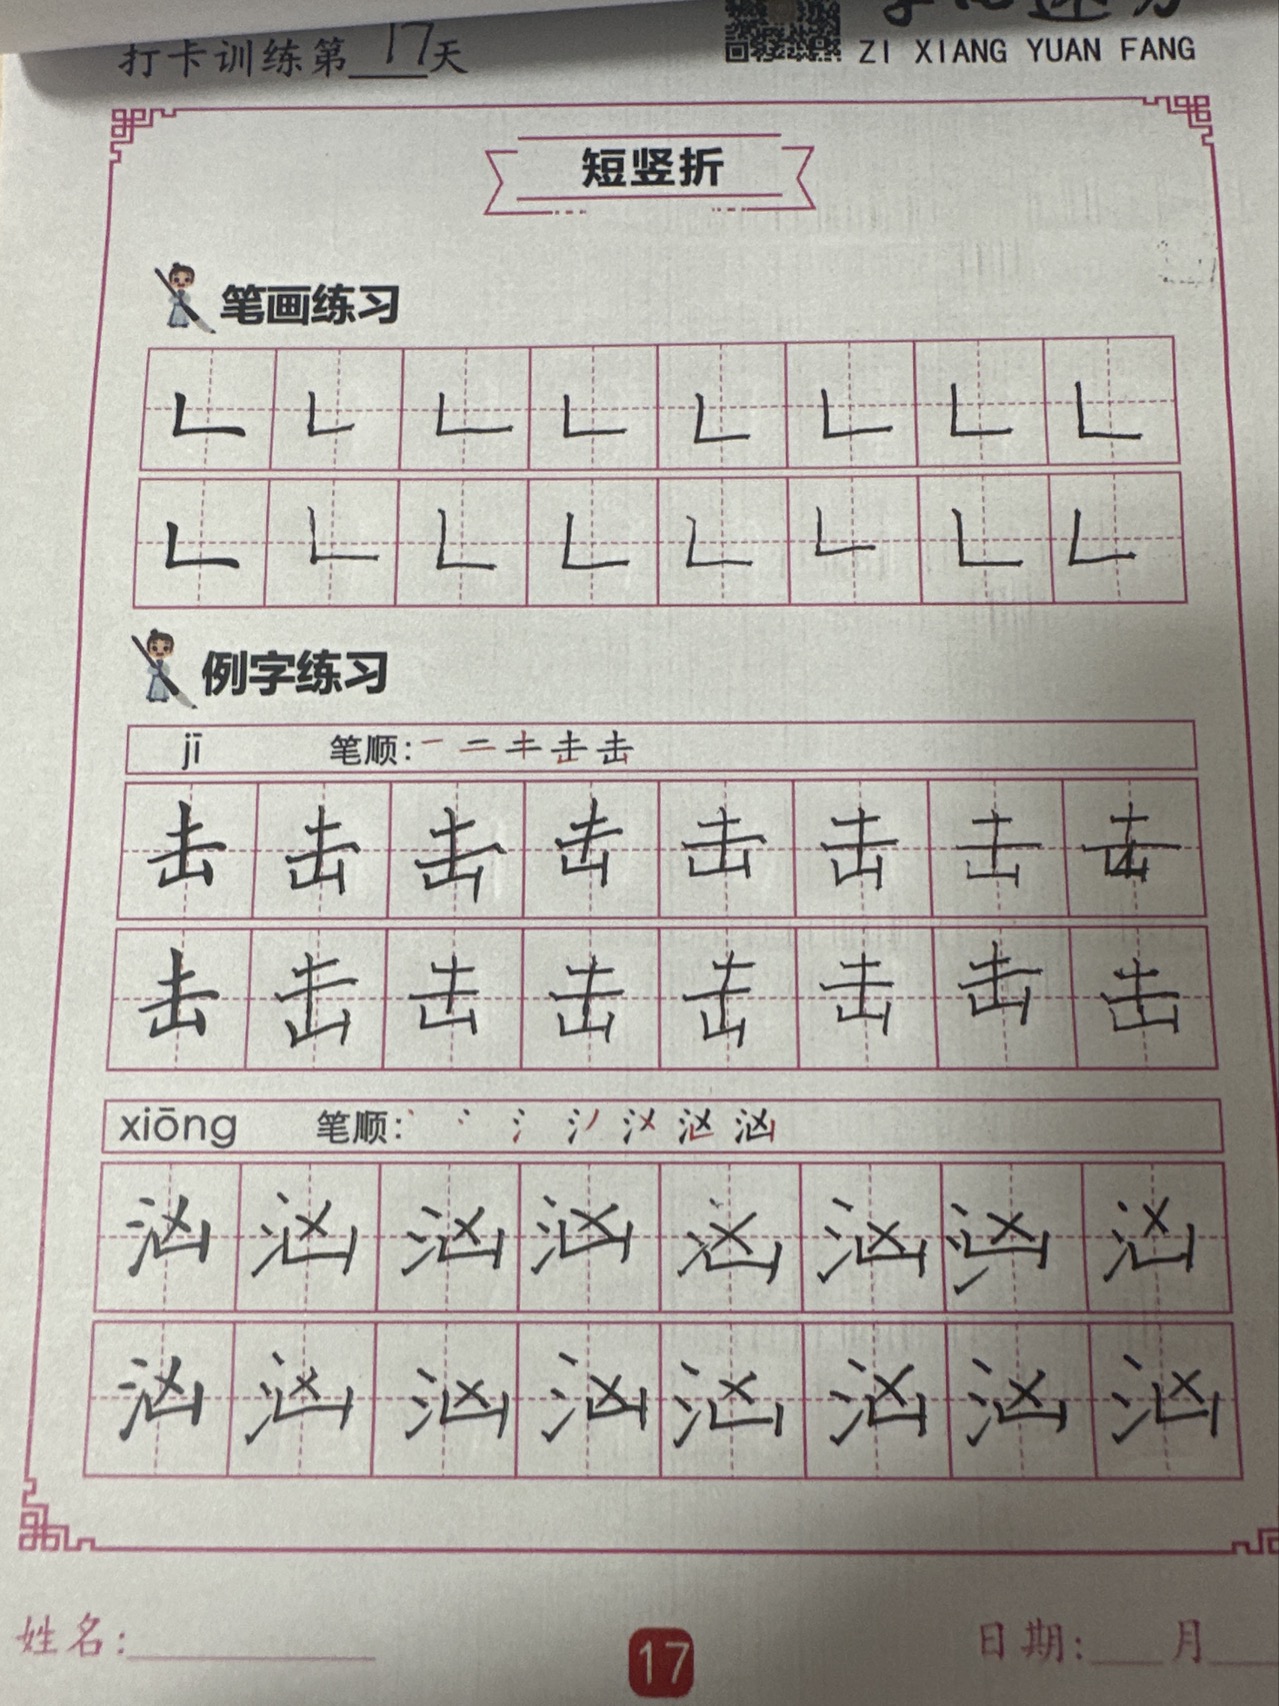 打卡训练第17天
ZI XIANG YUAN FANG
短竖折
笔画练习
𠃊 𠃊 𠃊 𠃊 𠃊 𠃊 𠃊 𠃊
𠃊 𠃊 𠃊 𠃊 𠃊 𠃊 𠃊 𠃊
例字练习
jī 笔顺:
击 击 击 击 击 击 击 击
击 击 击 击 击 击 击 击
xiōng 笔顺:
汹 汹 汹 汹 汹 汹 汹 汹
汹 汹 汹 汹 汹 汹 汹 汹
姓名: 17 日期: 月